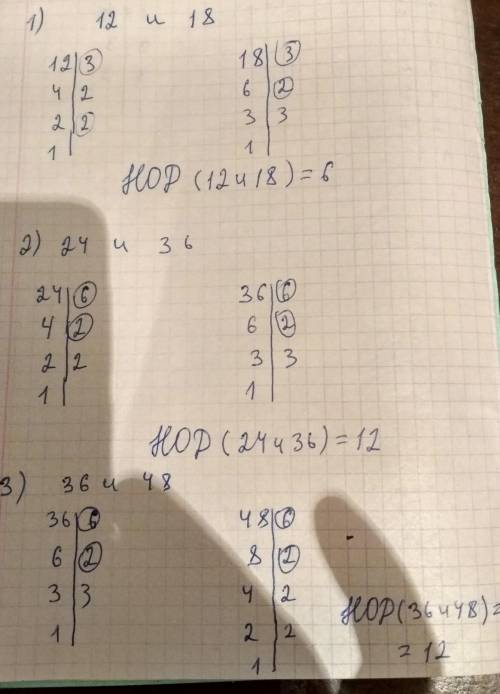 1) 12 и 18
12 | 3 18 | 3
4 | 2 6 | 2
2 | 2 3 | 3
1 | 1 |
НОД (12 и 18) = 6
2) 24 и 36
24 | 6 36 | 6
4 | 2 6 | 2
2 | 2 3 | 3
1 | 1 |
НОД (24 и 36) = 12
3) 36 и 48
36 | 6 48 | 6
6 | 2 8 | 2
3 | 3 4 | 2
1 | 2 | 2
1 |
НОД (36 и 48) =
= 12